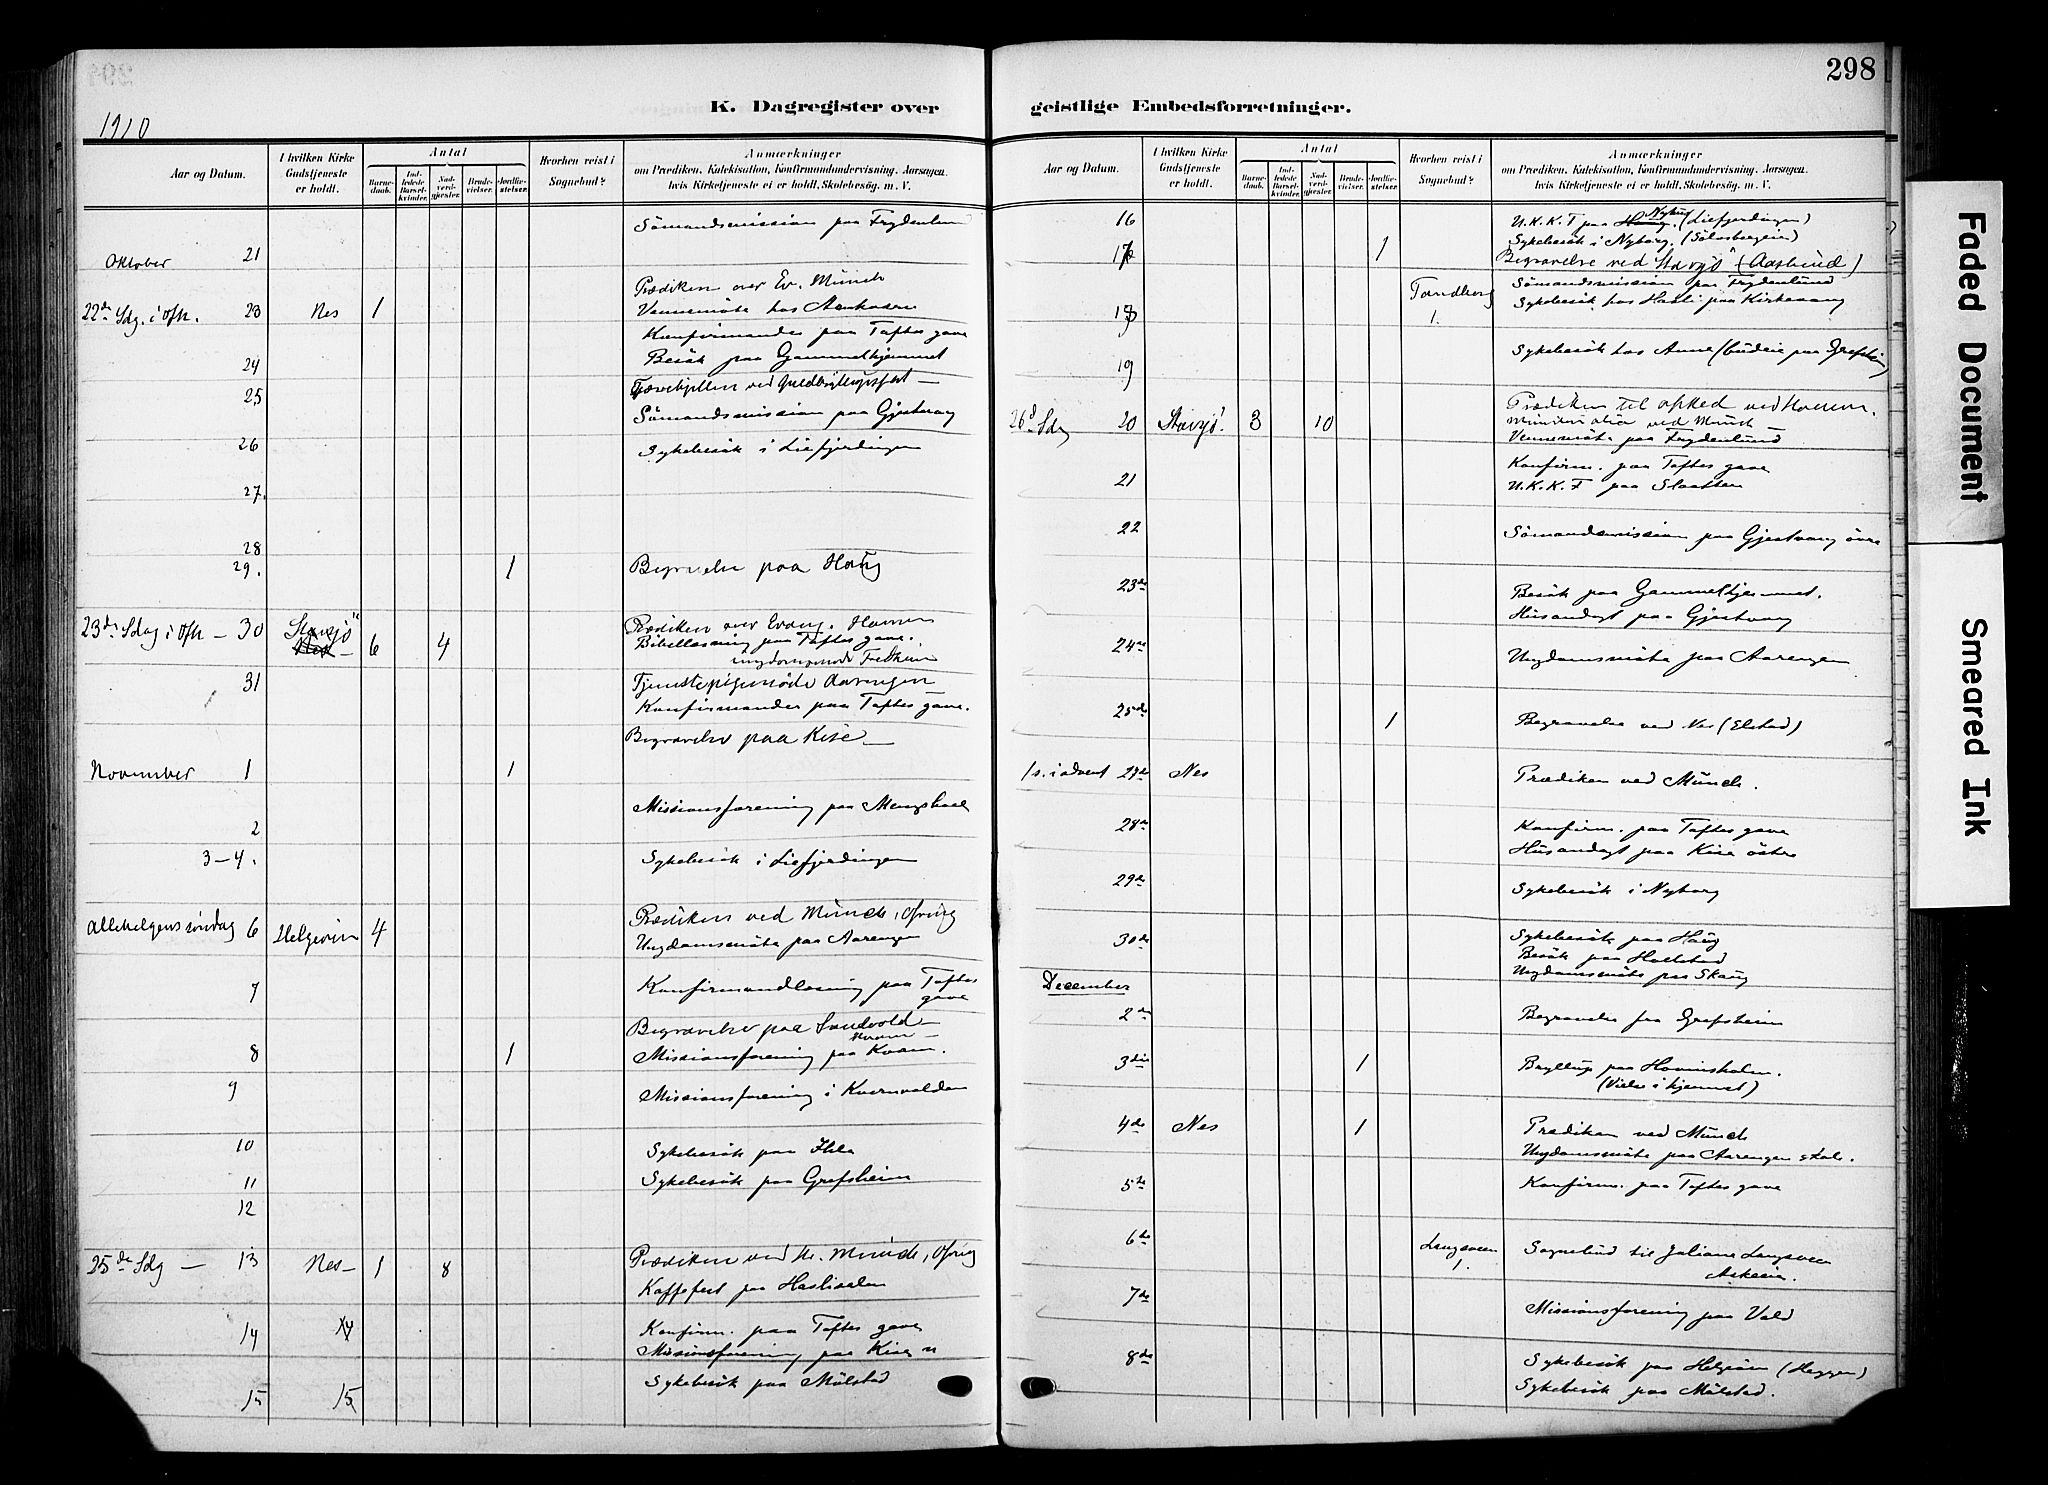 298
K. Dagregister over
geistlige Embedsforretninger.
1910
Aar og Datum.
I hvilken Kirke Gudstjeneste er holdt.
Antal
Barnedaab.
Indledede Barselkvinder.
Nadverdgjæster.
Brudevielser.
Jordfæstelser.
Hvorhen reist i Sognebud?
Anmærkninger
om Prædiken, Katekisation, Konfirmandundervisning, Aarsagen, hvis Kirketjeneste ei er holdt, Skolebesøg, m. V.
Sömandsmission paa Frydenlund
Oktober 21
Prædiken over Ev. Münch
22de Sdg. i Ofh. 23 Nes 1 Vennemöte hos
Konfirmander paa Toftes gave
24 Besök paa Gammelhjemmet
ved Guldbryllupsfest
25 Sömandsmission paa Gjestvang
26 Sykebesök i Liefjerdingen
27.
28
29. 1 Begravelse paa Haug
23de Sdag i Ofh – 30 Stavsjö 6 4 Prædiken over Evang. Hovem
Nes
Bibellæsning paa Toftes gave.
31 Tjenstepigemöde Aarengen
Konfirmander paa Toftes gave.
Begravelse paa Kise
November 1 1
2 Missionsforening paa
3–4. Sykebesök i Liefjerdingen
Allehelgenssöndag 6 Helgöien 4 Prædiken ved Münch, Ofring
Ungdomsmöte paa Aarengen
7 Konfirmandlæsning paa Toftes gave
Begravelse paa Sandvold
8 1 Missionsforening paa Kvam.
9 Missionsforening i
10 Sykebesök paa Ihle
11 Sykebesök paa Grefsheim
12
25de Sdg – 13 Nes 1 8 Prædiken ved Hr. Münch, Ofring
Kaffefest paa
14 14 Konfirm. paa Toftes gave
Missionsforening paa Kise n
15 15 Sykebesök paa Mölstad
Aar og Datum.
I hvilken Kirke Gudstjeneste er holdt.
Antal
Barnedaab.
Indledede Barselkvinder.
Nadverdgjæster.
Brudevielser.
Jordfæstelser.
Hvorhen reist i Sognebud?
Anmærkninger
om Prædiken, Katekisation, Konfirmandundervisning, Aarsagen, hvis Kirketjeneste ei er holdt, Skolebesøg, m. V.
16 U.K.K.F paa Haug. Nyborg (Liefjerdingen)
Sykebesök i Nyborg.
17 1 Begravelse ved Stavsjö (Aaslund)
Sömandsmission paa Frydenlund
18 Tandberg 1. Sykebesök hos paa Kirkevang
19 Sykebesök hos Anne (budeie paa Grefsheim)
26d Sdg 20 Stavsjö 3 10 Prædiken til opked ved Hovem.
ved Münch
Vennemöte paa Frydenlund
21 Konfirm. paa Toftes gave
U.K.K.F paa Slaatten
22 Sömandsmission paa Gjestvang övre
23de Besök paa Gammelhjemmet.
Husandagt paa Gjestvang
24de Ungdomsmöte paa Aarengen
25de 1 Begravelse ved Nes (Elstad)
1 s. i advent 27de Nes Prædiken ved Münch.
28de Konfirm. paa Toftes gave
Husandagt paa Kise östre
29de Sykebesök i Nyborg
30de Sykebesök paa Haug
Besök paa Holstad
Ungdomsmöte paa Skaug
December
2de Begravelse fra Grefsheim
3die 1 Bryllup paa Hovinsholm.
(Vielse i hjemmet)
4de Nes 1 Prædiken ved Münch
Ungdomsmöte paa Aarengen skole.
5te Konfirm. paa Toftes gave
6te Langsveen 1. Sognebud til Juliane Langsveen
7de Missionsforening paa Vold
8de Sykebesök paa Helgöien (Heggen)
Sykebesök paa Mölstad.
Faded Document
Smeared Ink